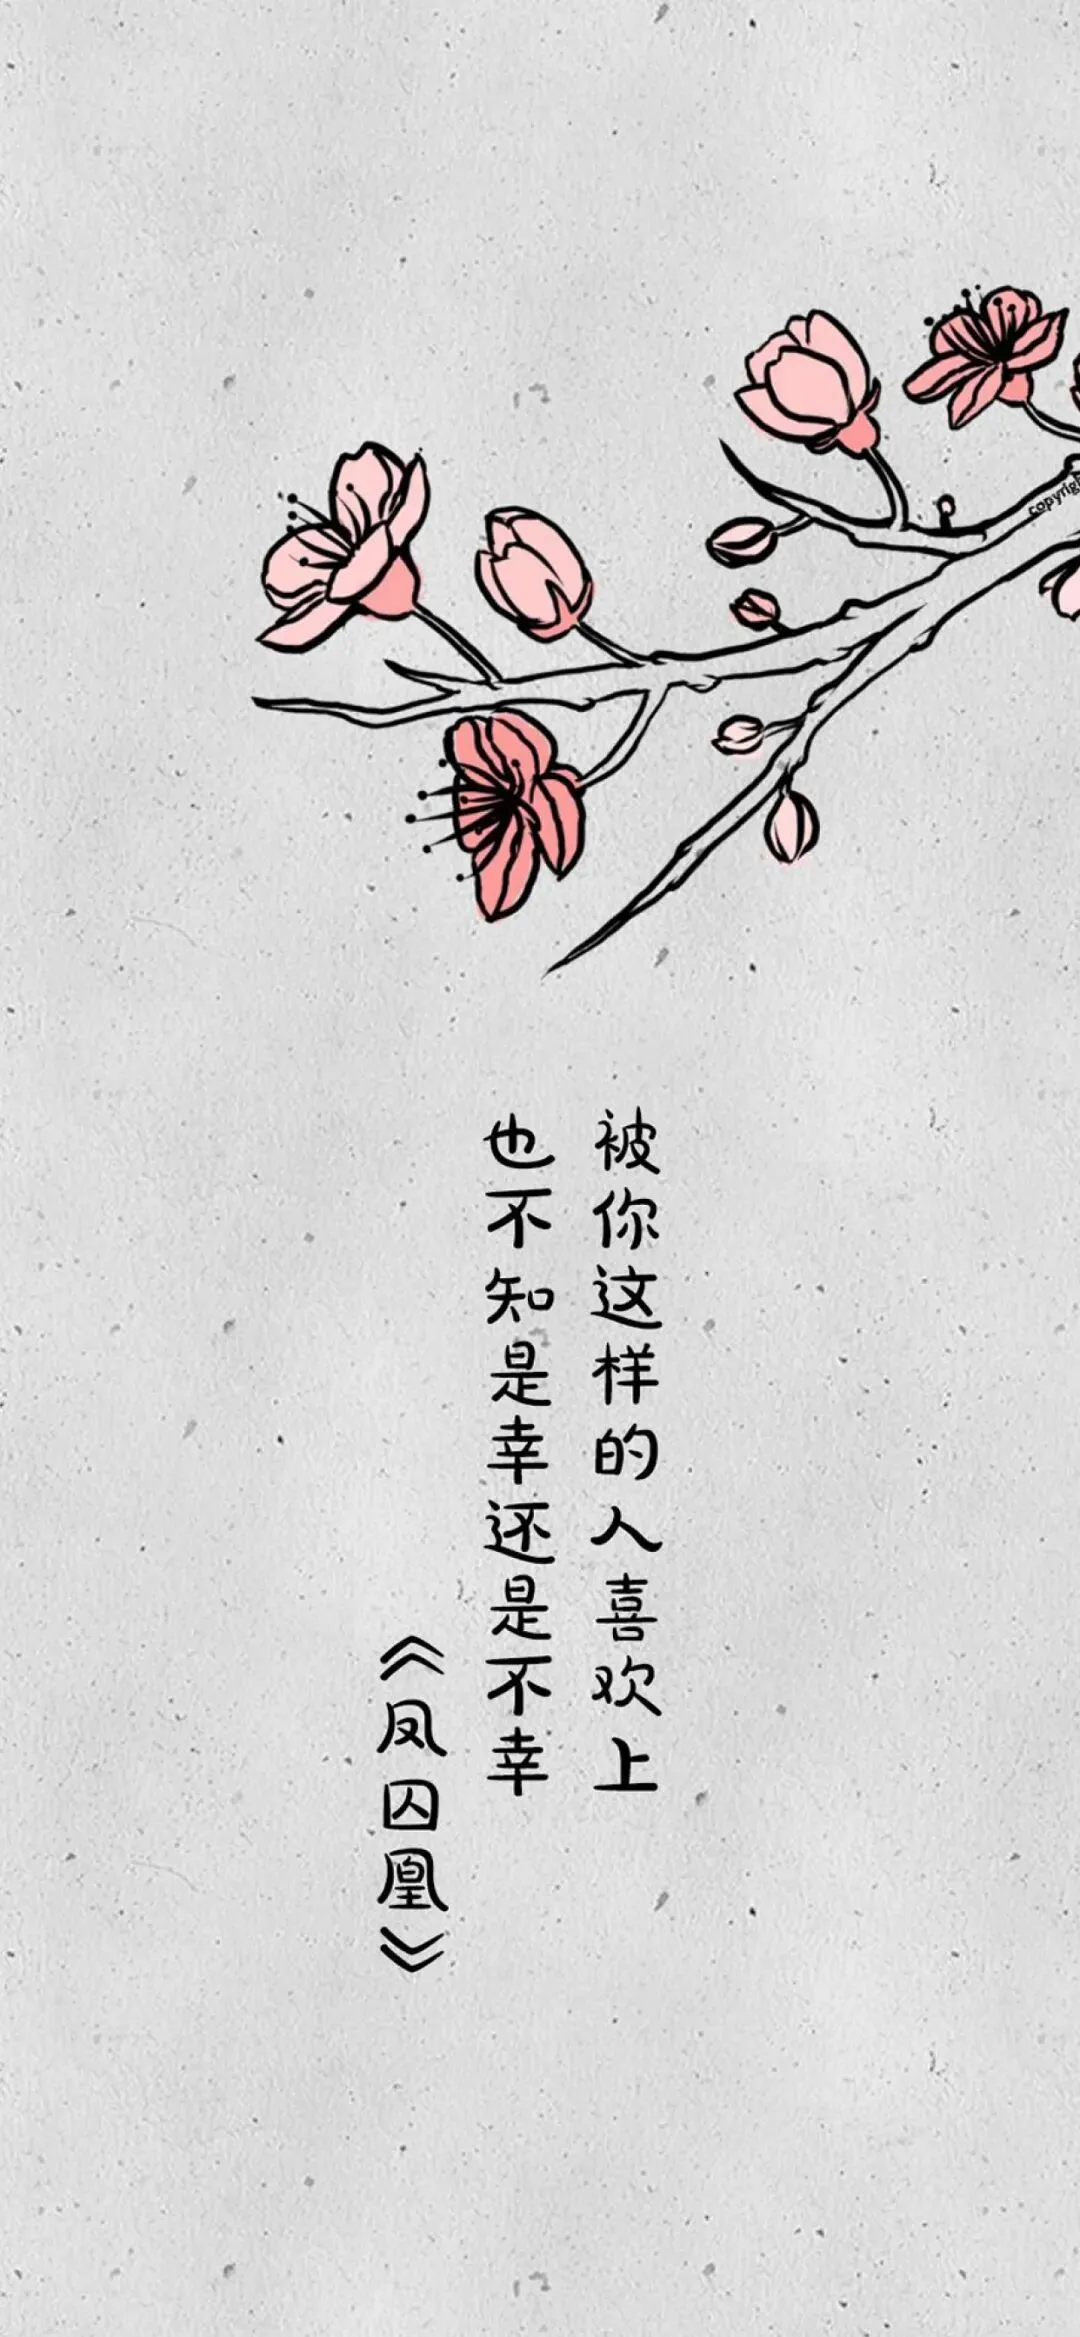 被你这样的人喜欢上
也不知是幸还是不幸
《凤囚凰》